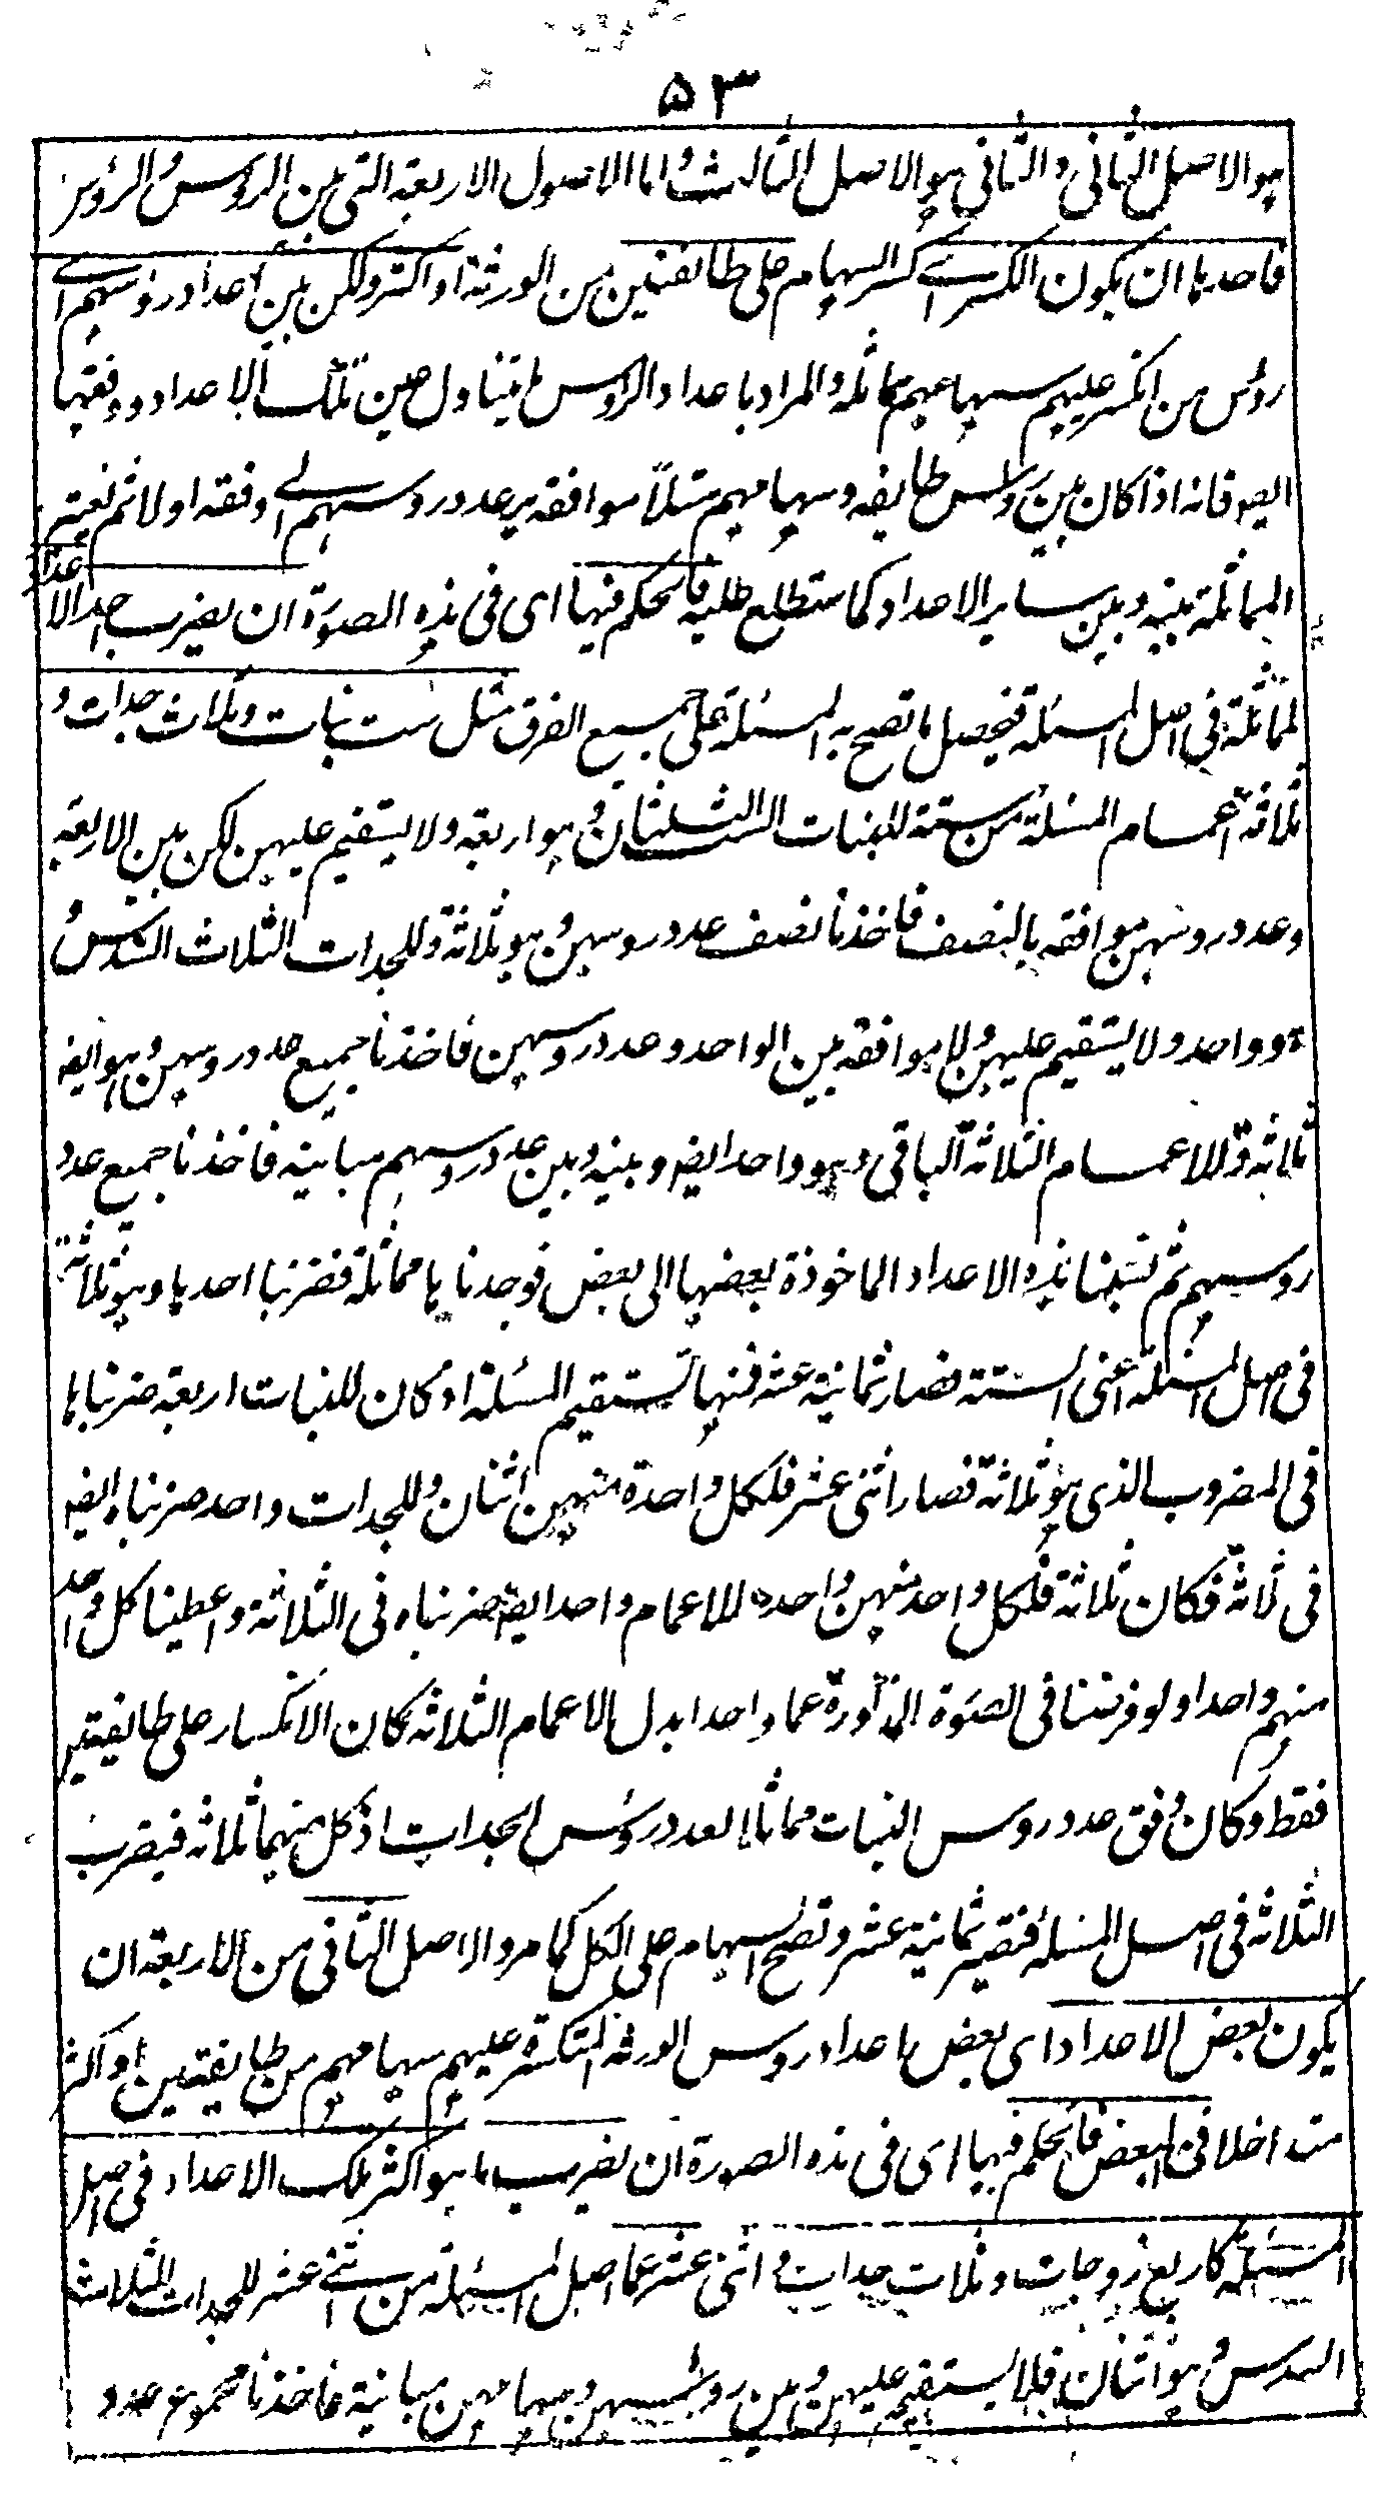 ۵۳
هو الاصل الثانى والثانى هو الاصل الثالث واما الاصول الاربعة التى بين الرؤس والرؤس
فاحدها ان يكون الكسر اى كسر السهام على طائفتين من الورثة او اكثر ولكن بين اعداد رؤسهم اى
رؤس من انكسر عليهم سهامهم مماثلة والمراد باعداد الرؤس ما يتناول عين تلك الاعداد ووفقها
ايضا فانه اذا كان بين رؤس طايفه وسهامهم مثلاً موافقه يرد عدد روسهم الى وفقه اولا ثم تعتبر
المماثلة بينه وبين ساير الاعداد كما ستطلع عليه فالحكم فيها اى فى هذه الصورة ان يضرب احد الا
عداد
لمماثلة فى اصل المسئلة فيحصل ما تصح به المسئلة على جميع الفرق مثل ست بنات وثلاث جدات و
ثلاثة اعمام المسئلة من ستة للبنات الست الثلثان وهو اربعة ولا يستقيم عليهن لكن بين الاربعة
وعدد روسهن موافقه بالنصف فاخذنا نصف عدد روسهن وهو ثلاثة وللجدات الثلاث السدس و
هو واحد ولا يستقيم عليهن ولا موافقة بين الواحد وعدد روسهن فاخذنا جميع عدد روسهن وهو ايضا
ثلاثه وللاعمام الثلاثة الباقى وهو واحد ايضا وبينه وبين عدد روسهم مباينه فاخذنا جميع عدد
روسهم ثم نسبنا هذه الاعداد الماخوذة بعضها الى بعض فوجدناها مماثلة فضربنا احدها وهو ثلاثة
فى اصل المسئلة اعنى الستة فصار ثمانية عشر فمنها تستقيم المسئلة اذ كان للبنات اربعة ضربناها
فى المضروب الذى هو ثلاثة فصار اثنى عشر فلكل واحدة منهن اثنان وللجدات واحد ضربناه ايضا
فى ثلاثة فكان ثلاثة فلكل واحد منهن واحده للاعمام واحد ايضا ضربناه فى الثلاثة واعطينا كل واحد
منهم واحدا ولو فرضنا فى الصورة المذكورة عما واحدا بدل الاعمام الثلاثه كان الانكسار على طايفتين
فقط وكان وفق عدد روس البنات مماثلا لعدد رؤس الجدات اذ كل منهما ثلاثه فيضرب
الثلاثة فى اصل المسئلة فتصير ثمانية عشر وتصح السهام على الكل كما مر والاصل الثانى من الاربعة ان
يكون بعض الاعداد اى بعض اعداد روس الورثة المنكسرة عليهم سهامهم من طايفتين او اكثر
متداخلا فى البعض فالحكم فيها اى فى هذه الصورة ان يضرب ما هو اكثر تلك الاعداد فى اصل
المسئلة كاربع زوجات وثلاث جدات واثنى عشر عما اصل المسئلة من اثنى عشر للجدات الثلاث
السدس وهو اثنان فلا يستقيم عليهن وبين روسهن وسهامهن مباينة فاخذنا مجموع عدد